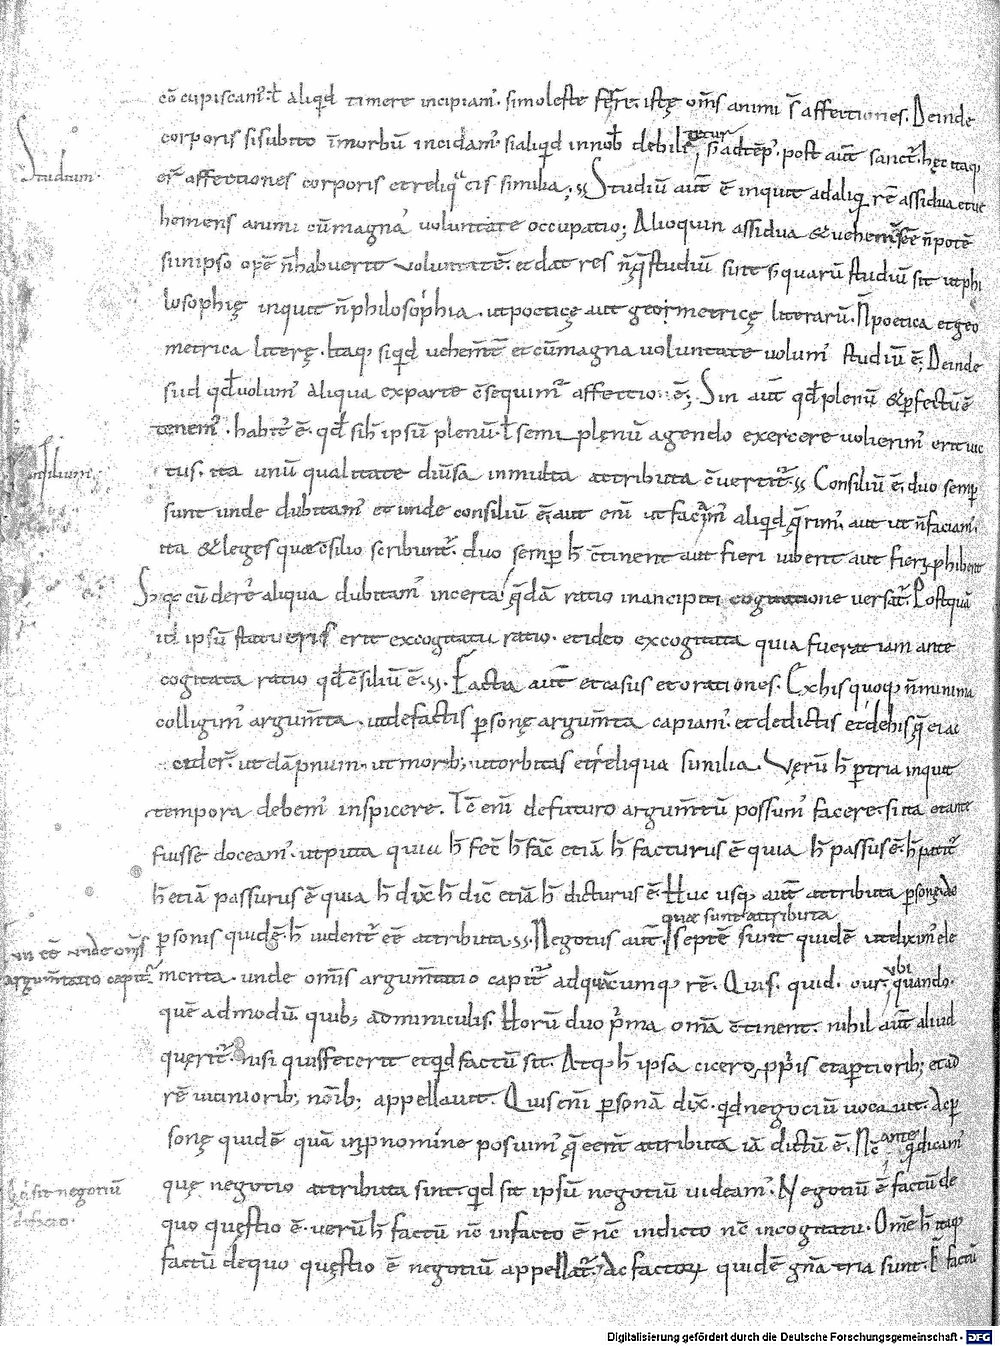 cō cupiscam᾽. ł aliqd timere incipiam᾽. si moleste ferre. istę om̄s animi s̄ affectiones. Deinde
corporis si subito ī morbū incidam᾽. si aliqd in nob̄ debilitetur s; ad tēp᾽. post aut̄ sanet᾽. hęc itaq;
Studium.
er᾽ affectiones corporis et reliqa cis similia. Studiū aut̄ ē inquit ad aliq̄ rē assidua et ue
hemens animi cū magna voluntate occupatio; Alioquin assidua & uehemēs eē n̄ potē
si in ipso opē n̄ habuerit voluntatē. et dat res n̄ q̄ studiū sint s; quarū studiū sit ut phi
losophię inquit n̄ philosophia. ut poeticę aut geometricę literarū. N̄ poetica et geo
metrica literę. Itaq; si qd uehem̄t̄ et cū magna uoluntate uolum᾽ studiū ē; Deinde
si id qd uolum᾽ aliqua ex parte c̄sequim᾽ affectio ē; Sin aut̄ qd plenū & pfectū ē
tenem᾽. habit᾽ ē. qd si h̄ ipsū plenū. ł semi plenū agendo exercere uoluerim᾽ erit uir
tus. ita unū qualitate diū͛sa in multa attributa c̄uertit᾽. Consiliū ē. duo semp
Consilium.
sunt unde dubitam᾽ et unde consiliū ē. aut eni ut faciam᾽ aliqd q̄rim᾽. aut ut n̄ faciam᾽.
ita & leges quae c̄silio scribunt᾽. duo semp h̄ c̄tinent aut fieri iubent aut fieri phibent
S; qc cū de re aliqua dubitam᾽ incerta q̄dā ratio in ancipiti cogitatione versat᾽. Postquā
id ipsū statueris erit excogitata ratio. et ideo excogitata quia fuerat iam ante
cogitata ratio qd c̄siliū ē. Facta aut̄ et casus et orationes. Ex his quoq; n̄ minima
colligim᾽ argum̄ta. ut de factis psonę argum̄ta capiam᾽. et de dictis et de his q̄ ei ac
cider᾽. ut dāpnum. ut morib; ut orbitas et reliqua similia. Verū h̄ p tria inquit
tempora debem᾽ inspicere. Tc̄ eni de futuro argum̄tū possum᾽ facere. si ita et ante
fuisse doceam᾽. ut puta quia h̄ fec̄ h̄ fac̄ etiā h̄ facturus ē quia h̄ passus ē. h̄ patit᾽
h̄ etiā passurus ē quia h̄ dix̄ h̄ dic̄ etiā h̄ dicturus ē. Huc usq; aut̄ attributa psonę. Ac
psonis quidē. h̄ uident᾽ eē attributa. Negotiis aut̄. quae sunt attributa septē sunt quidē ut dixim᾽ ele
menta. unde om̄is argum̄tatio capit᾽ ad quācumq; rē. Quis. quid. cur. ubi quando.
unde om̄is
argum̄tatio capit᾽.
quē ad modū. quib; adminiculis. Horū duo p͛ma om̄a c̄tinent. nihil aut̄ aliud
querit᾽. nisi quis fecerit et qd factū sit. Atq; h̄ ipsa cicero ppriis et aptiorib; et ad
rē uicinorib; noīb; appellauit. Quis eni psonā dix̄. qd negociū uocauit. Ac p
sonę quidē quā in p nomine posuim᾽ q̄ eent attributa iā dictū ē. Nc̄ ante q̄ dicam᾽
quę negotio attributa sint. qd sit ipsū negotiū uideam᾽. Negotiū ē factū de
qd sit negotiū
quo quęstio ē. verū h̄ factū nc̄ in facto ē nc̄ in dicto nc̄ in cogitatu. Omē h̄ itaq;
factū de quo quęstio ē negotiū appellat᾽. Ac factorꝝ quidē gn̄a tria sunt. Ē factū
Digitalisierung gefördert durch die Deutsche Forschungsgemeinschaft - DFG